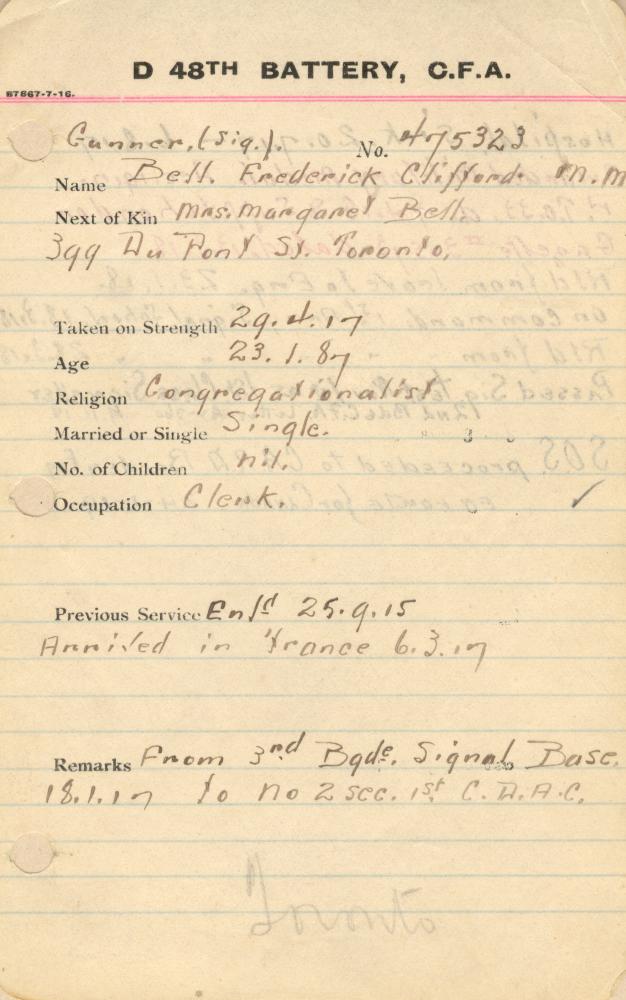 D 48TH BATTERY, C.F.A.
B7867-7-16.
Gunner, (Sig.). No. 475323
Name Bell. Frederick Clifford. M.M
Next of Kin Mrs. Margaret Bell.
399 Du Pont St. Toronto.
Taken on Strength 29.4.17
Age 23.1.87
Religion Congregationalist
Married or Single Single.
No. of Children nil.
Occupation Clerk.
Previous Service Enl'd 25.9.15
Arrived in France 6.3.17
Remarks From 3rd Bgde. Signal Base.
18.1.17 to No 2 sec. 1st C.D.A.C.
Toronto